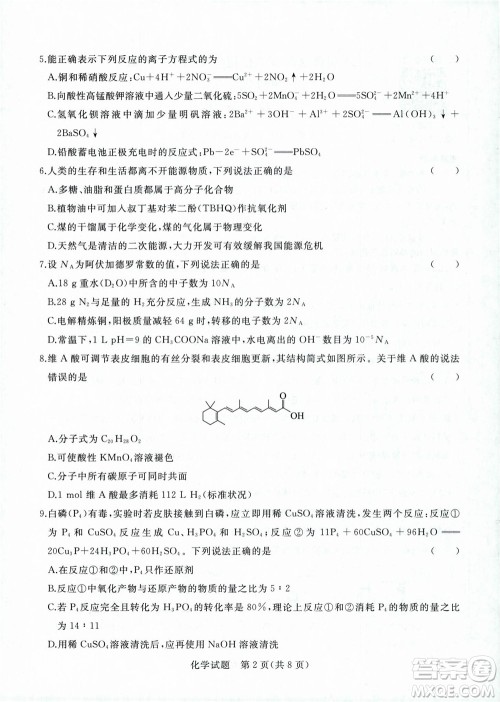 5.能正确表示下列反应的离子方程式的为 （ ）
A.铜和稀硝酸反应:Cu+4H⁺+2NO₃⁻══Cu²⁺+2NO₂↑+2H₂O
B.向酸性高锰酸钾溶液中通入少量二氧化硫:SO₂+2OH⁻══SO₃²⁻+H₂O
C.氢氧化钡溶液中滴加少量明矾溶液:2Ba²⁺+3OH⁻+Al³⁺+2SO₄²⁻══Al(OH)₃↓+
2BaSO₄↓
D.铅酸蓄电池正极充电时的反应式:Pb-2e⁻+SO₄²⁻══PbSO₄
6.人类的生存和生活都离不开能源物质,下列说法正确的是 （ ）
A.多糖、油脂和蛋白质都是高分子化合物
B.植物油中可加入叔丁基对苯二酚(TBHQ)作抗氧化剂
C.煤的干馏属于化学变化,煤的气化属于物理变化
D.天然气是清洁的二次能源,大力开发可有效缓解我国能源危机
7.设 Nₐ为阿伏加德罗常数的值,下列说法正确的是 （ ）
A.18 g 重水(D₂O)中所含的中子数为10Nₐ
B.28 g N₂与足量的 H₂充分反应,生成 NH₃的分子数为2Nₐ
C.电解精炼铜,阳极质量减轻 64 g 时,转移的电子数为2Nₐ
D.常温下,1 L pH=9 的 CH₃COONa 溶液中,水电离出的 OH⁻数目为10⁻⁵Nₐ
8.维 A 酸可调节表皮细胞的有丝分裂和表皮细胞更新,其结构简式如图所示。关于维 A 酸的说法
错误的是 （ ）
O
OH
A.分子式为 C₂₀H₂₈O₂
B.能使酸性 KMnO₄溶液褪色
C.分子中所有碳原子不可能共平面
D.1 mol 维 A 酸最多消耗 112 L H₂(标准状况)
9.白磷(P₄)有毒,实验时若皮肤接触到白磷,应立即用稀 CuSO₄溶液清洗,发生两个反应。反应①
为 P₄和 CuSO₄反应生成 Cu 和两种酸,反应②为 11P₄+60CuSO₄+96H₂O══
20Cu₃P+24H₃PO₄+60H₂SO₄。下列说法正确的是 （ ）
A.在反应①和反应②中,P₄只作还原剂
B.反应②中氧化产物与还原产物的物质的量之比为 5∶2
C.若 P₄在反应①中转化为 H₃PO₄的转化率是80%,理论上反应①和反应②消耗的水的质量比为
14∶11
D.用稀 CuSO₄溶液清洗后,应再用 NaOH 溶液清洗
化学试题 第 2 页(共 8 页)